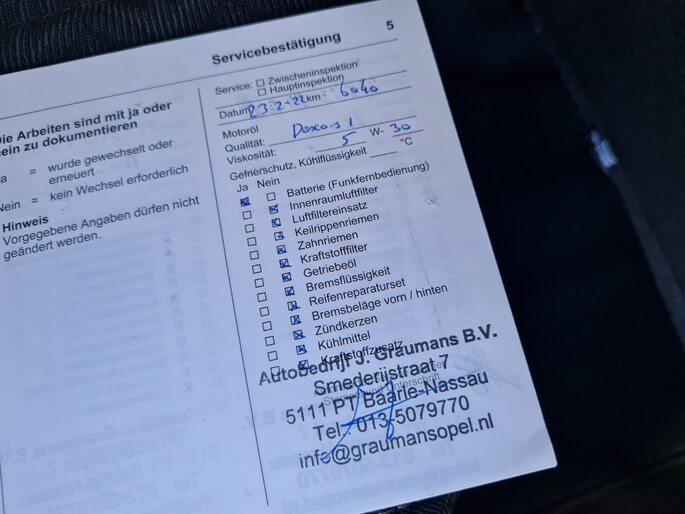 Servicebestätigung 5
Die Arbeiten sind mit ja oder
nein zu dokumentieren
Ja = wurde gewechselt oder
erneuert
Nein = kein Wechsel erforderlich
Hinweis
Vorgegebene Angaben dürfen nicht
geändert werden.
Service: Zwischeninspektion
Hauptinspektion
Datum 23-2-22 km 6040
Motoröl
Qualität: Dexos 1
Viskosität: 5 W- 30
Gefrierschutz, Kühlflüssigkeit °C
Ja Nein
Batterie (Funkfernbedienung)
Innenraumluftfilter
Luftfiltereinsatz
Keilrippenriemen
Zahnriemen
Kraftstofffilter
Getriebeöl
Bremsflüssigkeit
Reifenreparaturset
Bremsbeläge vorn / hinten
Zündkerzen
Kühlmittel
Kraftstoffzusatz
Autobedrijf J. Graumans B.V.
Smederijstraat 7
5111 PT Baarle-Nassau
Tel.: 013-5079770
info@graumansopel.nl